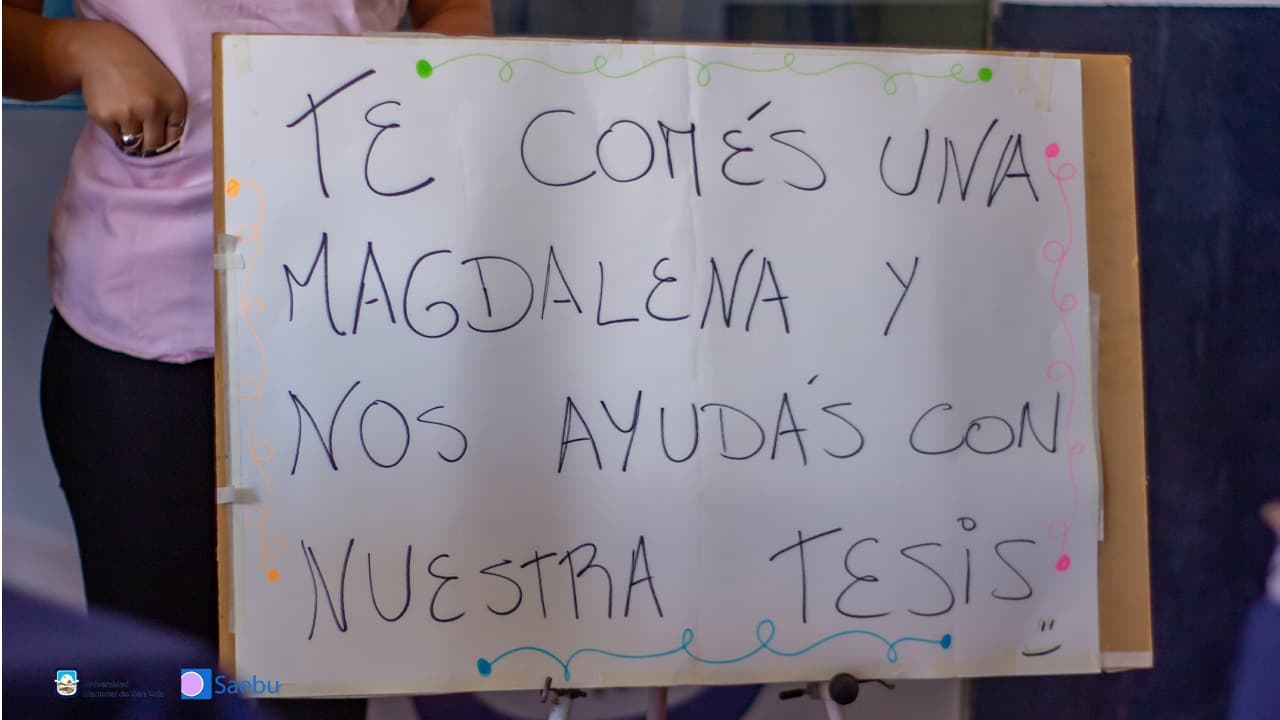 TE COMÉS UNA
MAGDALENA Y
NOS AYUDÁS CON
NUESTRA TESIS
Universidad
Nacional de San Luis
Saebu